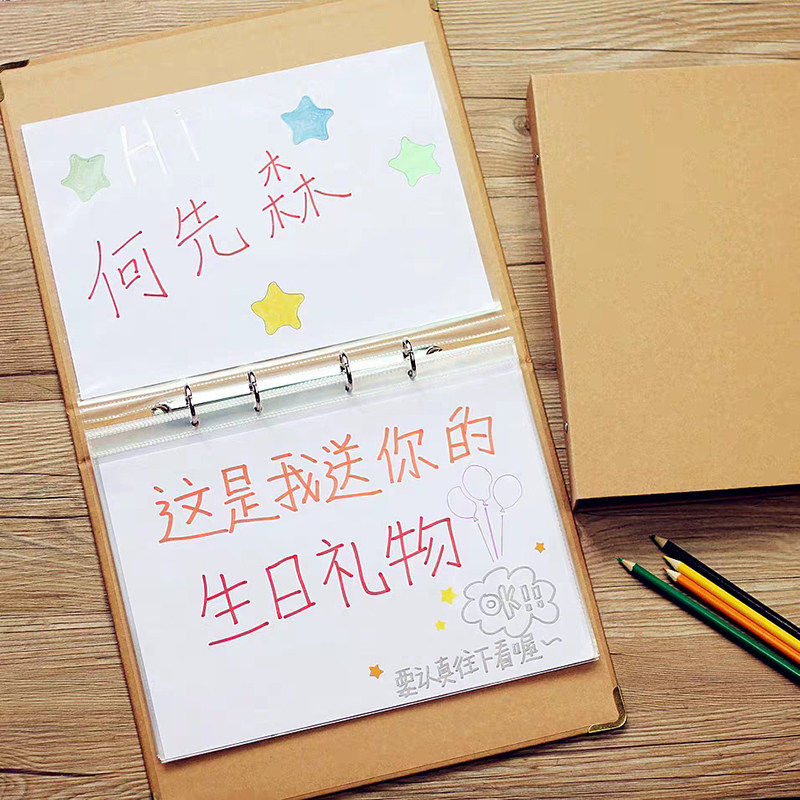 Hi
何先森
这是我送你的
生日礼物
OK!!
要认真往下看喔~